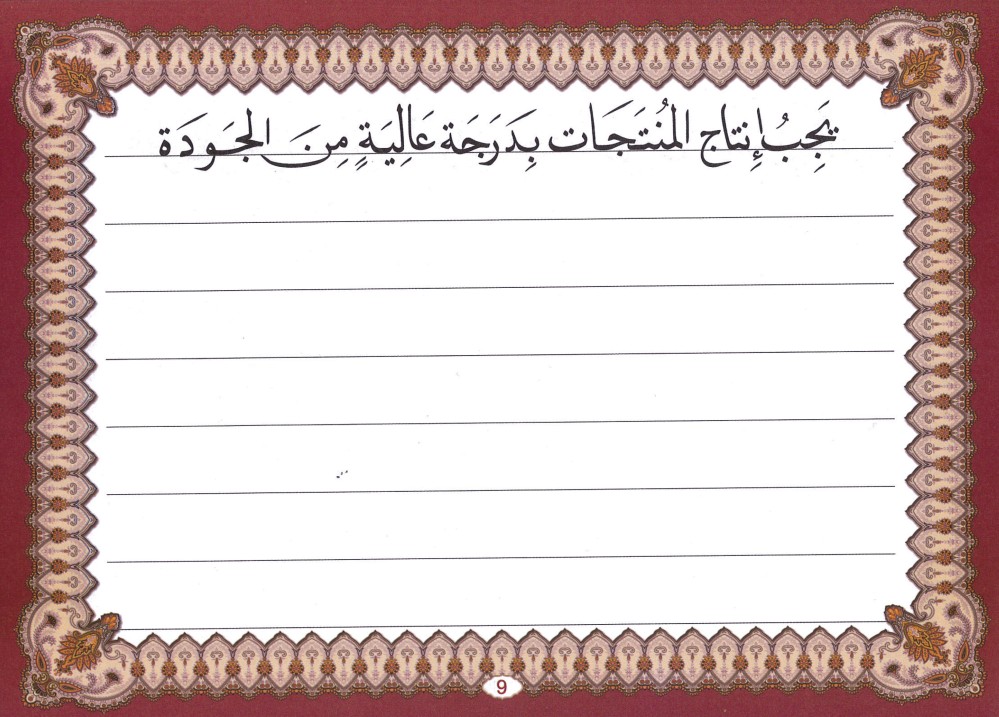 يَجِبُ إِنتاج المُنتَجَات بِدَرَجَة عَالِيَةٍ مِنَ الجَودَة
9